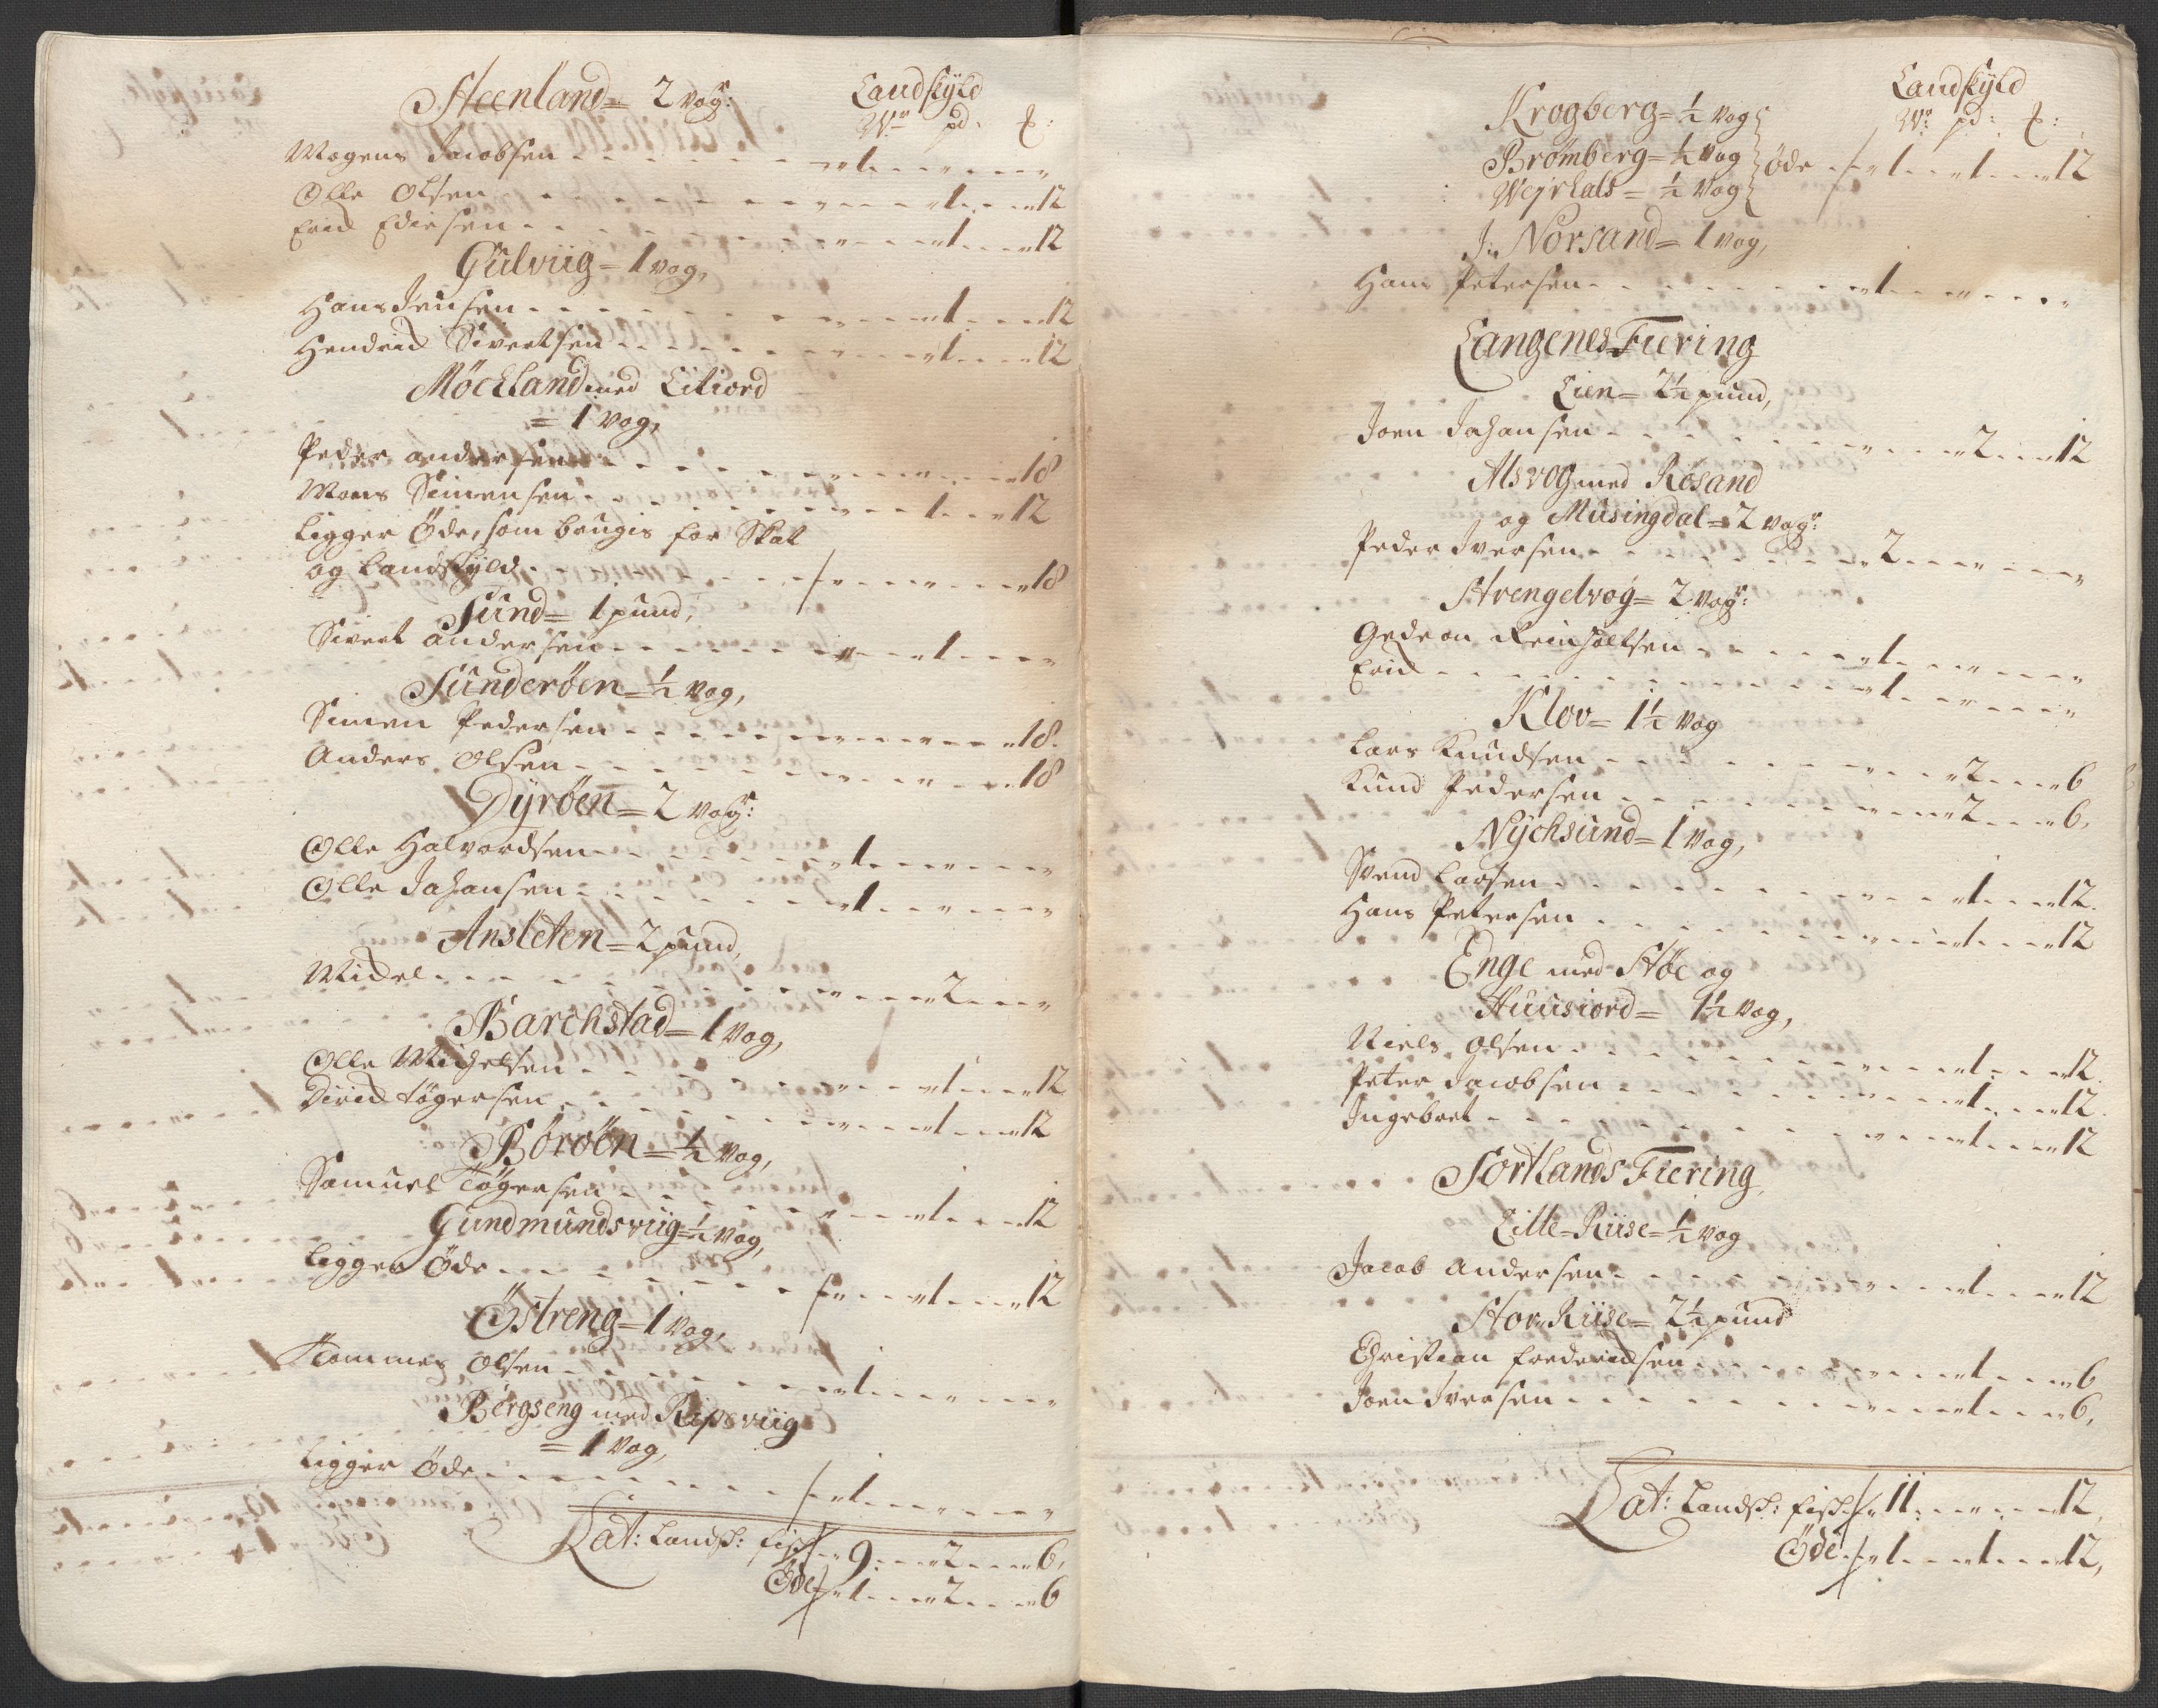 Steenland = 2 vogr:
Landskÿld
Wr: pd: ℔:
Mogens Jacobsen - - - - - "1 - - " - - "
Olle Olsen - - - - - " - - "1 - - "12
Erich Edisen - - - - - " - - "1 - - "12
Gulviig = 1 vog,
Hans Jensen - - - - - " - - "1 - - "12
Hendrich Sivertsen - - - - - " - - "1 - - "12
Möckland med Litiord
= 1 vog,
Peder andersen - - - - - " - - " - - "18
Mons Simensen - - - - - " - - "1 - - "12
Ligger Öde, som brugis for Skat
og Landskÿld - - - - - " - - " - - "18
Sund = 1 pund,
Sivert andersen - - - - - " - - "1 - - "
Sunderöen = ½ vog,
Simen Pedersen - - - - - " - - " - - "18.
Anders Olsen - - - - - " - - " - - "18
Dyröen = 2 vogr:
Olle Halvordsen - - - - - "1 - - " - - "
Olle Johansen - - - - - "1 - - " - - "
Ansleten = 2 pund,
Michel - - - - - " - - "2 - - "
Barchstad = 1 vog,
Olle Michelsen - - - - - " - - "1 - - "12
Dirich Tögersen - - - - - " - - "1 - - "12
Böröen = ½ vog,
Samuel Tögersen - - - - - " - - "1 - - "12
Gundmundsviig = ½ vog,
Ligger Öde - - - - - " - - "1 - - "12
Östreng = 1 vog,
Tommes Olsen - - - - - "1 - - " - - "
Bergseng med Ripsviig
= 1 vog,
Ligger Öde - - - - - "1 - - " - - "
Lat: Landsk: fisk "9: - - "2 - - "6,
Öde "1 - - "2 - - "6
Landskÿld
Wr: pd: ℔:
Krogberg = ½ vog
Bromberg = ½ vog Öde - "1 - - "1 - - "12
Wejrhals = ½ vog
Jn Norsand = 1 vog,
Hans Petersen - - - - - "1 - - " - - "
Langenes Fiering
Lien = 2½ pund,
Joen Johansen - - - - - " - - "2 - - "12
Alsvog med Rosand
og Musingdal = 2 vogr:
Peder Iversen - - - - - "2 - - " - - "
Strengelvog = 2 vogr:
Gedeon Reinholtsen - - - - - "1 - - " - - "
Erich - - - - - "1 - - " - - "
Klov = 1½ vog
Lars Knudsen - - - - - " - - "2 - - "6
Kund Pedersen - - - - - " - - "2 - - "6,
Nÿchsund = 1 vog,
Svend Larsen - - - - - " - - "1 - - "12.
Hans Petersen - - - - - " - - "1 - - "12
Enge med Stöe og
Huusiord = 1½ vog,
Niels Olsen - - - - - " - - "1 - - "12.
Peter Jacobsen - - - - - " - - "1 - - "12.
Ingebret - - - - - " - - "1 - - "12
Sortlands Fiering,
Lille-Riise = ½ vog
Jacob andersen - - - - - " - - "1 - - "12
Stor Riise = 2½ pund
Christian Frederichsen - - - - - " - - "1 - - "6
Joen Iversen - - - - - " - - "1 - - "6,
Lat: Landsk: fisk "11: - - " - - "12,
Öde "1 - - "1 - - "12,